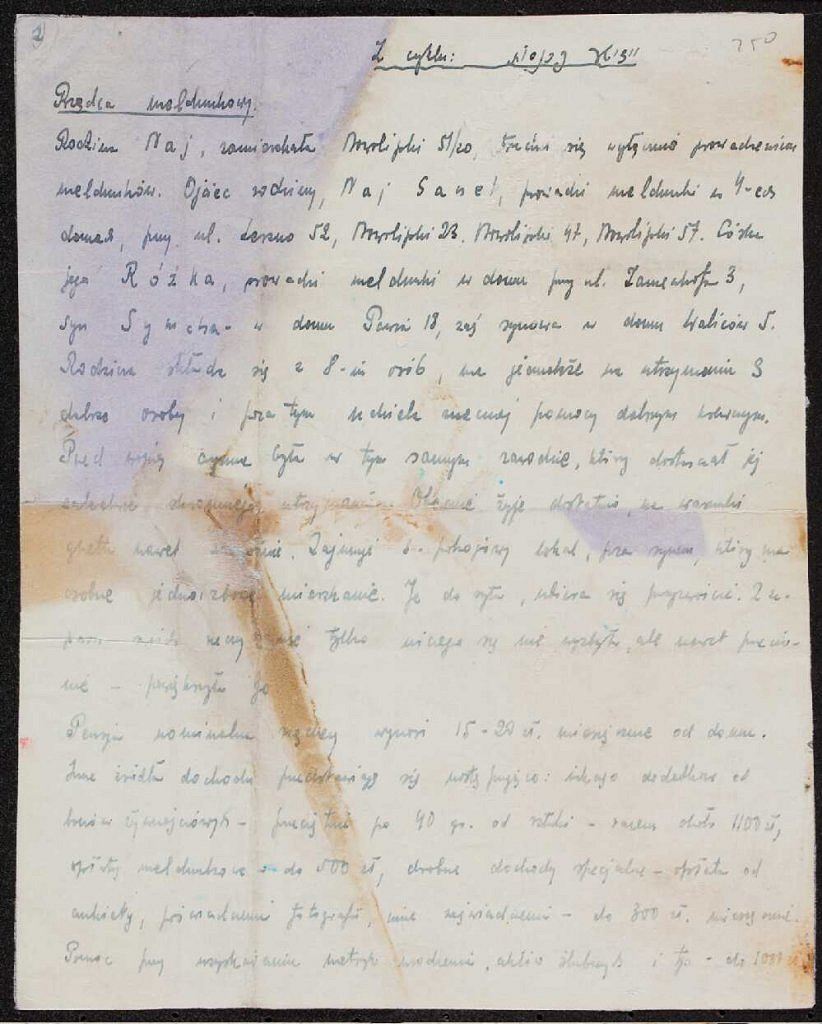 Z cyklu:
Rządca meldunkowy.
Rodzina Naj, zamieszkała Nowolipki 51/20, trudni się wyłącznie prowadzeniem
meldunków. Ojciec rodziny, Naj, prowadzi meldunki w 4-ech
domach, przy ul. Leszno 52, Nowolipki 23, Nowolipki 47, Nowolipki 57. Córka
jego Rózka, prowadzi meldunki w domu przy ul. Zamenhofa 3,
syn Symcha - w domu Pawia 18, zaś synowa w domu Waliców 5.
Rodzina składa się z 8-iu osób, ma jednakże na utrzymaniu 3
osoby i poza tym udziela pomocy dalszym krewnym.
Przed wojną czynna była w tym samym zawodzie, który dostarczał jej
utrzymania. Obecnie żyje dostatnio, na warunki
ghetta nawet. Zajmuje pokojowy lokal, poza synem, który ma
osobne jednoizbowe mieszkanie. Je do syta, ubiera się przyzwoicie. Z u-
tylko niczego się nie wyzbyła, ale nawet przeciw-
nie - powiększyła je
Pensja nominalna rządcy wynosi 15-20 zł. miesięcznie od domu.
Inne źródła dochodu przedstawiają się następująco: dodatkowe od
bonów żywnościowych - przeciętnie po 40 gr. od sztuki - razem około 1100 zł,
opłaty meldunkowe - do 500 zł, drobne dochody specjalne - opłata od
ankiety, poświadczenia fotografii, inne zaświadczenia - do 300 zł. miesięcznie.
Pomoc przy uzyskiwaniu metryk urodzenia, aktów ślubnych i tp - do